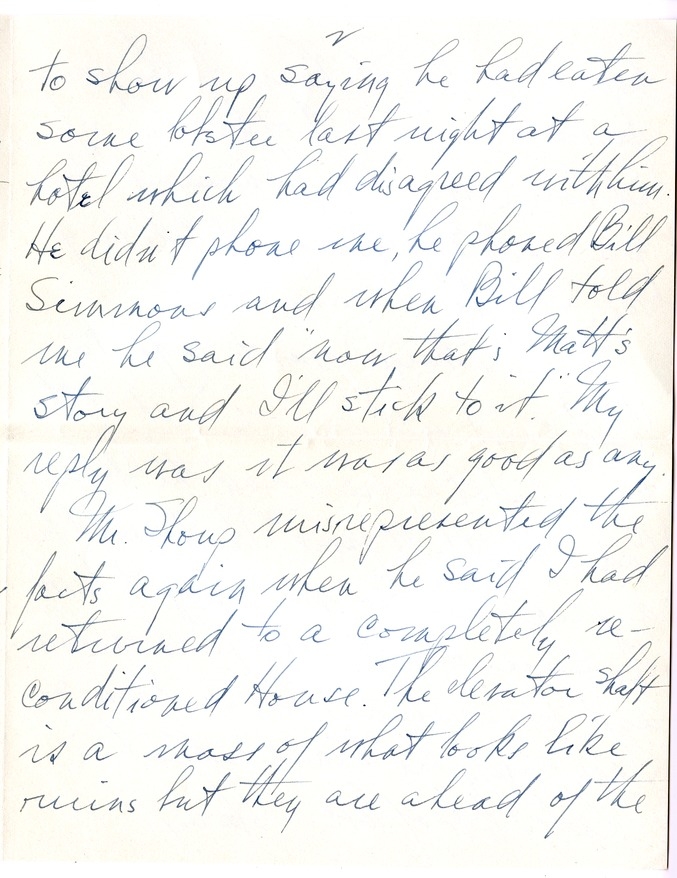 2
to show up saying he had eaten
some lobster last night at a
hotel which had disagreed with him.
He didn't phone me, he phoned Bill
Simmons and when Bill told
me he said "now that's Matt's
story and I'll stick to it." My
reply was it was as good as any.
Mr. Thoup misrepresented the
facts again when he said I had
returned to a completely re-
conditioned House. The elevator shaft
is a mass of what looks like
ruins but they are ahead of the